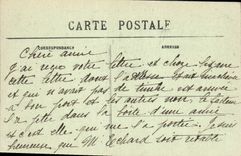 CARTE POSTALE
CORRESPONDANCE
ADRESSE
Chère amie
J'ai reçu votre lettre et chose
cette lettre dont l'adresse était
et qui n'avait pas de timbre est arrivée
à bon port et les autres non, le facteur
l'a jetée dans la boîte d'une amie
et c'est elle qui me l'a portée. Suis
heureuse que M. Echard soit